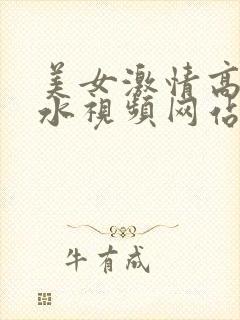 美女激情高
水视频网佔
牛有成